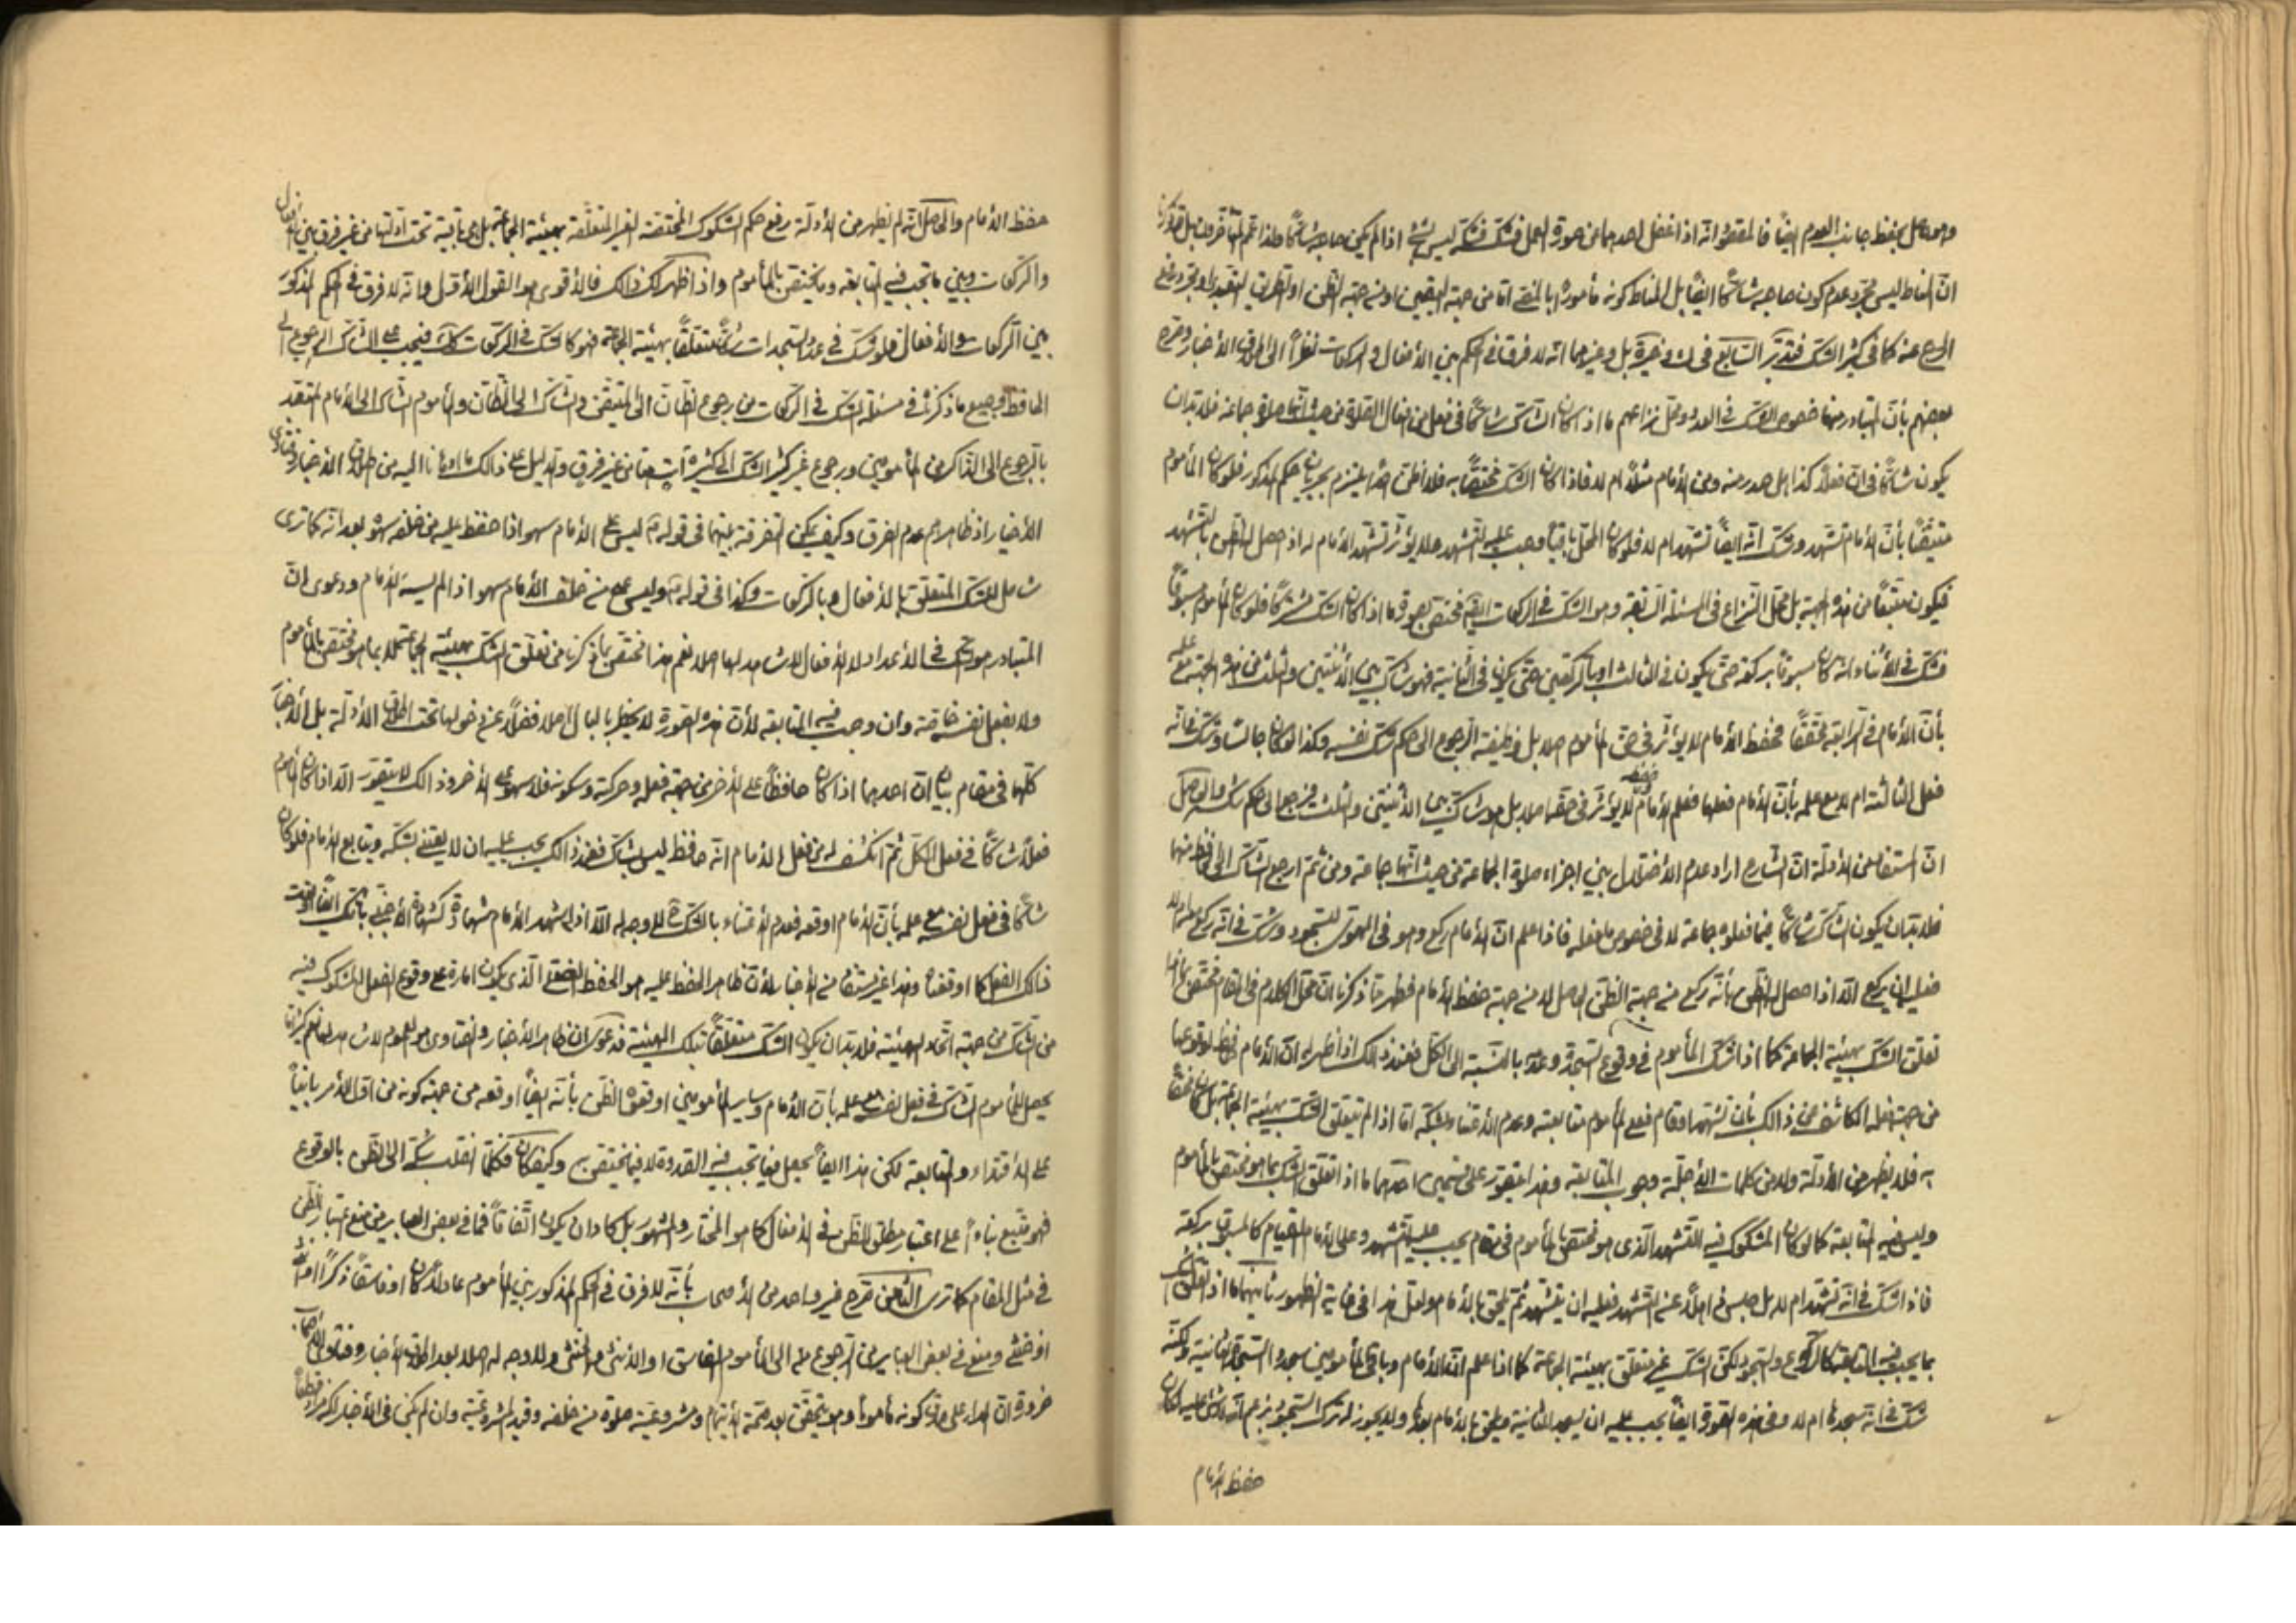 وهو حاصل بحفظ جانب العدم ايضاً فالمقصود انه اذا غفل احدهما عن صورة العمل فشك فشكه ليس بشئ اذا لم يكن صاحبه شاكاً
انّ المناط ليس مجرد عدم كون صاحبه شاكاً ايضاً بل المناط كونه مأموراً بالمضي امّا من جهة اليقين او من جهة الظن او بطريق التعبد
عنه كما في كثير الشك فتدبّر السابع في بل وغيرهما انه لا فرق في الحكم بين الأفعال والركعات نظراً الى اطلاق الأخبار وصرح
بعضهم بأنّ المتبادر منها خصوص الشك في العدد ومحل نزاعهم ما اذا كان الشاك شاكاً في فعل من افعال الصلوة من حيث انّها صلوة جماعة فلا بد ان
يكون شاكاً في انّ فعلاً كذا هل صدر منه ومن الأمام مثلاً ام لا فاذا كان الشك مختصاً به فلا اظن احداً يلتزم بجريان الحكم المذكور فلو كان المأموم
متيقّناً بأنّ الأمام تشهد وشك انّه ايضاً تشهد ام لا فلو كان المحل باقياً وجب عليه التشهد ولا يؤثر تشهد الأمام له اذا حصل له الظن بالتشهد
فيكون متبعاً من هذه الجهة بل محل النزاع في المسئلة السابقة وهو الشك في الركعات ايضاً مختص بصورة ما اذا كان الشك مشتركاً فلو كان المأموم مسبوقاً
فشك في الأثناء انه كان مسبوقاً بركعة حتى يكون في الثالثة او بالركعتين حتى يكون في الثانية فهو شاك بين الأثنتين والثلث من هذه الجهة مع علمه
بأنّ الأمام في الرابعة محققاً فحفظ الأمام لا يؤثر في حق المأموم اصلاً بل وظيفته الرجوع الى حكم شك نفسه وكذا لو كان جالساً وشك في انه
فعل الثالثة ام لا مع علمه بأنّ الأمام فعلها فعلم الأمام وحفظه لا يؤثر في حقه اصلاً بل هو شاك بين الأثنتين والثلث فيرجع الى حكم شكه والحاصل
انّ المستفاد من الأدلة انّ الشارع اراد عدم الأختلال بين اجزاء صلوة الجماعة من حيث انّها جماعة ومن ثم ارجع الشاك الى الحافظ منهما
فلا بد ان يكون الشاك شاكاً فيما فعلوه جماعة لا في خصوص ما فعله فاذا علم انّ الأمام ركع وهو في الهوي للسجود وشك في انه ركع ام لا
فعليه ان يركع الّا اذا حصل له الظن بأنّه ركع من جهة الظن الحاصل له من جهة حفظ الأمام فظهر مما ذكرنا انّ محل الكلام في المقام مختص بما اذا
تعلق الشك بهيئة الجماعة كما اذا شك المأموم في وقوع السجدة وعدمه بالنسبة الى الكل فعند ذلك اذا ظهر له انّ الأمام حافظ لوقوعها
من جهة فعله الكاشف عن ذالك بأن تشهد او قام فعلى المأموم متابعته وعدم الأعتناء بشكه امّا اذا لم يتعلق الشك بهيئة الجماعة بل كان مختصاً
به فلا يظهر من الأدلة ولا من كلمات الأجلّة وجوب المتابعة وهذا يتصور على قسمين احدهما ما اذا تعلق الشك بما هو مختص بالمأموم
وليس فيه المتابعة كما لو كان المشكوك فيه التشهد الّذي هو مختص بالمأموم في مقام يجب عليه التشهد وعلى الأمام القيام كالمسبوق بركعة
فاذا شك في انّه تشهد ام لا بل جلس عن التشهد فعليه ان يتشهد ثم يلحق بالأمام ولعل هذا في غاية الظهور ثانيهما ما اذا تعلق الشك
بما يجب فيه المتابعة كالركوع والسجود لكن الشك غير متعلق بهيئة الجماعة كما اذا علم انّ الأمام وباقي المأمومين سجدوا السجدة الثانية ولكنه
شك في انه سجدها ام لا وفي هذه الصورة ايضاً يجب عليه ان يسجد الثانية ويلحق بالأمام بعدها ولا يجوز له ترك السجود بزعم انّه
حفظ الأمام
حفظ الأمام والحاصل انّه لم يظهر من الأدلة رفع حكم الشكوك المختصة الغير المتعلقة بهيئة الجماعة بل هي باقية تحت ادلتها من غير فرق بين الأفعال
والركعات وبين ما تجب فيه المتابعة وما يختص بالمأموم واذا ظهر لك ذالك فالأقوى هو القول الأول وانه لا فرق في الحكم المذكور
بين الركعات والأفعال فلو شك في عدد السجدات شكاً متعلقاً بهيئة الجماعة فهو كالشك في الركعات فيجب على الشاك الرجوع الى
الحافظ وجميع ما ذكرنا في مسئلة الشك في الركعات من رجوع الظان الى المتيقن والشاك الى الظان والمأموم الشاك الى الأمام المتعبد
بالرجوع الى الذاكر من المأمومين ورجوع غير كثير الشك الى كثيره آت هنا من غير فرق والدليل على ذالك ما اومأنا اليه من اطلاق الأخبار وفتاوى
الأخيار اذ ظاهرهم عدم الفرق وكيف يمكن التفرقة بينهما في قوله ع ليس على الأمام سهو اذا حفظ عليه من خلفه سهوه بعد انه كما ترى
شامل للشك المتعلق بالأفعال وبالركعات وكذا في قوله ع وليس على من خلف الأمام سهو اذا لم يسه الأمام ودعوى انّ
المتبادر هو الشك في الأعداد لا الأفعال لا شاهد لها اصلاً نعم هذا مختص بما ذكرنا من تعلق الشك بهيئة الجماعة لا بما هو مختص بالمأموم
ولا بفعل نفسه خاصة وان وجبت فيه المتابعة لأنّ هذه الصورة لا يخطر بالبال اصلاً فضلاً عن دخولها تحت اطلاق الأدلة بل الأخبار
كلها في مقام بيان انّ احدهما اذا كان حافظاً على الأخر من جهة فعله وحركته وسكونه فلا سهو على الأخر وذالك لا يتصور الّا اذا كان المأموم
فعلاً شاكاً في فعل الكل ثم انكشف له من فعل الأمام انّه حافظ ليس بشاك فعند ذالك يجب عليه ان لا يعتني بشكه ويتابع الأمام فلو كان
شاكاً في فعل نفسه مع علمه بأنّ الأمام اوقعه فعدم الأعتناء بالشك لا وجه له الّا اذا شهد الأمام شهادة كشهادة الأجنبي بأنك ايضاً اوقعت
ذالك الفعل كما اوقعنا وهذا غير مستفاد من الأخبار لأنّ ظاهر الحفظ عليه هو الحفظ الفعلي الّذي يكون امارة على وقوع الفعل المشكوك فيه
من الشاك من جهة اتحاد الهيئة فلا بد ان يكون الشك متعلقاً بتلك الهيئة فدعوى ان ظاهر الأخبار والفتاوى هو العموم لا شاهد لها نعم كثيراً ما
يحصل للمأموم الشاك في فعل نفسه مع علمه بأنّ الأمام وساير المأمومين اوقعوه الظن بأنّه ايضاً اوقعه من جهة كونه من اول الأمر بانياً
على الأقتداء والمتابعة لكن هذا ايضاً يحصل فيما تجب فيه القدوة لا فيما يختص به وكيف كان فكلما انقلب شكه الى الظن بالوقوع
فهو متبع بناءً على اعتبار مطلق الظن في الأفعال كما هو المختار والمشهور بل كاد ان يكون اتفاقاً فما في بعض العباير من منع اعتبار الظن
في مثل المقام كما ترى الثامن صرح غير واحد من الأصحاب بأنّه لا فرق في الحكم المذكور بين المأموم عادلاً كان او فاسقاً ذكراً او انثى
او خنثى ومنع في بعض العباير من الرجوع الى المأموم الفاسق او الأنثى والخنثى ولا وجه له اصلاً بعد اطلاق الأخبار وفتاوى الأصحاب
ضرورة انّ المدار على صدق كونه مأموماً وهو يتحقق بعد صحة الأيتمام ومشروعية صلوة من خلفه وقيد المشروعية وان لم يكن في الأخبار